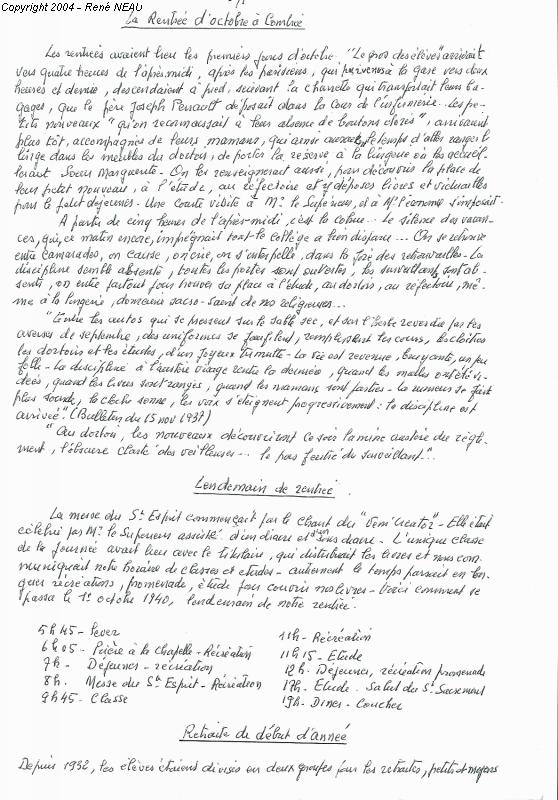 Copyright 2004 - René NEAU
La Rentrée d'octobre à Combrée
Les rentrées avaient lieu les premiers jours d'octobre. "Le gros des élèves" arrivait
vers quatre heures de l'après-midi, après les parisiens, qui parvenus à la gare vers deux
heures et demie, descendaient à pied, suivant la charrette qui transportait leurs ba-
gages, que le père Joseph Perrault déposait dans la Cour de l'infirmerie. Les pe-
tits nouveaux "qu'on reconnaissait à leur absence de boutons dorés", arrivaient
plus tôt, accompagnés de leurs mamans, qui ainsi avaient le temps d'aller ranger le
linge dans les meubles du dortoir, de porter la réserve à la lingerie où les accueil-
lerait Soeur Marguerite - On les renseignerait aussi, pour découvrir la place de
leur petit nouveau, à l'étude, au réfectoire et y déposer livres et victuailles
pour le petit déjeuner - Une courte visite à Mr le Supérieur, et à Mr l'économe s'imposait.
A partir de cinq heures de l'après-midi, c'est la cohue... Le silence des vacan-
ces, qui, ce matin encore, imprégnait tout le Collège a bien disparu... On se retrouve
entre camarades, on cause, on crie, on s'interpelle, dans la joie des retrouvailles - La
discipline semble absente, toutes les portes sont ouvertes, les surveillants sont ab-
sents, on entre partout pour trouver sa place à l'étude, au dortoir, au réfectoire, mê-
me à la lingerie, domaine sacro-saint de nos religieuses...
"Entre les autos qui se pressent sur le sable sec, et sur l'herbe reverdie par les
averses de septembre, des uniformes se faufilent, remplissant les cours, les cloîtres
les dortoirs et les études, d'un joyeux tumulte - La vie est revenue, bruyante, un peu
folle - La discipline à l'austère visage rentre la dernière, quand les malles ont été vi-
dées, quand les livres sont rangés, quand les mamans sont parties - La rumeur se fait
plus sourde, la cloche sonne, les voix s'éteignent progressivement : la discipline est
arrivée". (Bulletin du 15 nov 1937)
"Au dortoir, les nouveaux découvriront ce soir la mine austère du règle-
ment, l'obscure clarté des veilleuses... le pas feutré du surveillant".
Lendemain de rentrée
La messe du St Esprit commençait par le chant du "Veni Creator" - Elle était
célébrée par Mr le Supérieur assisté d'un diacre et d'un sous diacre - L'unique classe
de la journée avait lieu avec le titulaire, qui distribuait les livres et nous com-
muniquait notre horaire de classes et études - autrement le temps passait en lon-
gues récréations, promenade, étude pour couvrir nos livres - Voici comment se
passa le 1er octobre 1940, lendemain de notre rentrée.
5h45 - Lever
6h05 - Prière à la Chapelle - Récréation
7h - Déjeuner - récréation
8h. Messe du St Esprit - Récréation
9h45 - Classe
11h - Récréation
11h15 - Etude
12h - Déjeuner, récréation promenade
17h - Etude - Salut du St Sacrement
19h - Diner - Coucher
Retraite de début d'année
Depuis 1932, les élèves étaient divisés en deux groupes pour les retraites, petits et moyens